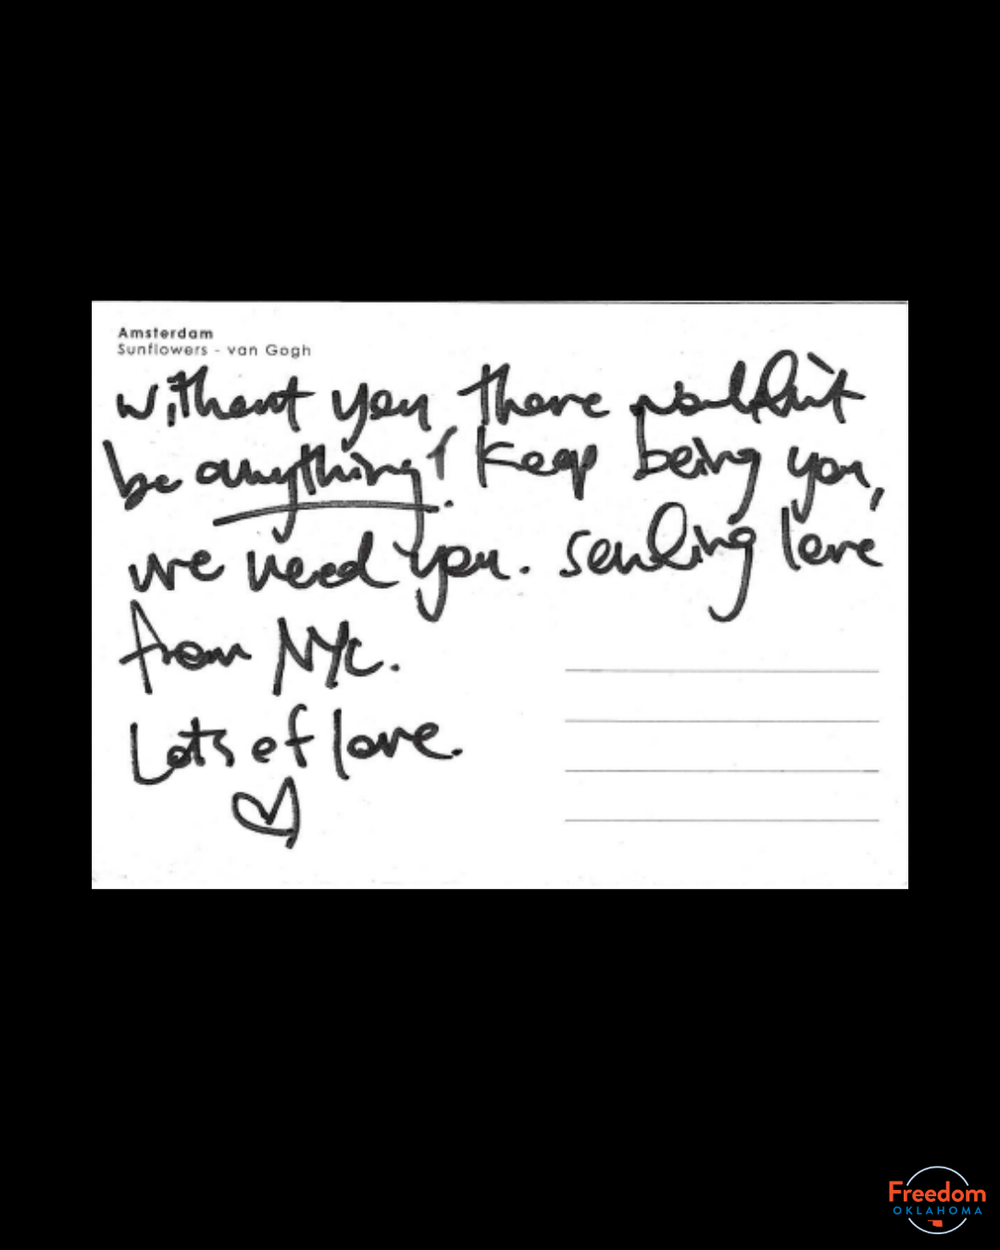 Amsterdam
Sunflowers - van Gogh
without you there wouldn't
be anything! Keep being you,
we need you. sending love
from NYC.
Lots of love.
Freedom
OKLAHOMA